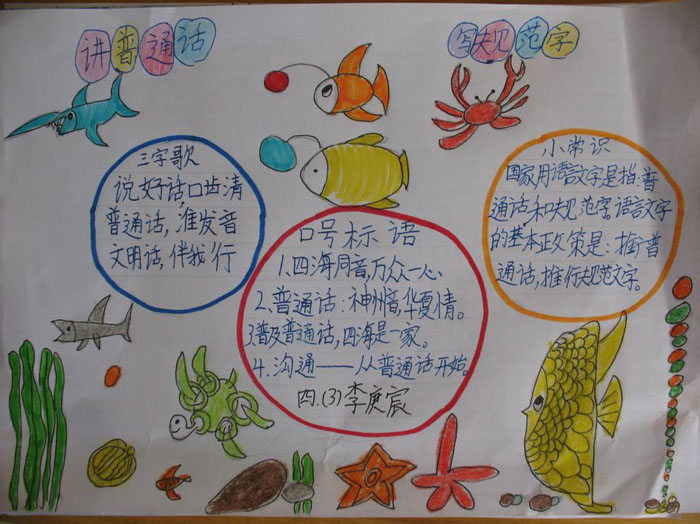 讲普通话
写规范字
三字歌
说好话,口齿清
普通话,准发音
文明话,伴我行
口号标语
1.四海同音,万众一心。
2.普通话:神州音,华夏情。
3.普及普通话,四海是一家。
4.沟通——从普通话开始。
四.(3)李庚宸
小常识
国家用语言文字是指:普
通话和规范字。语言文字
的基本政策是:推普
通话,推行规范文字。